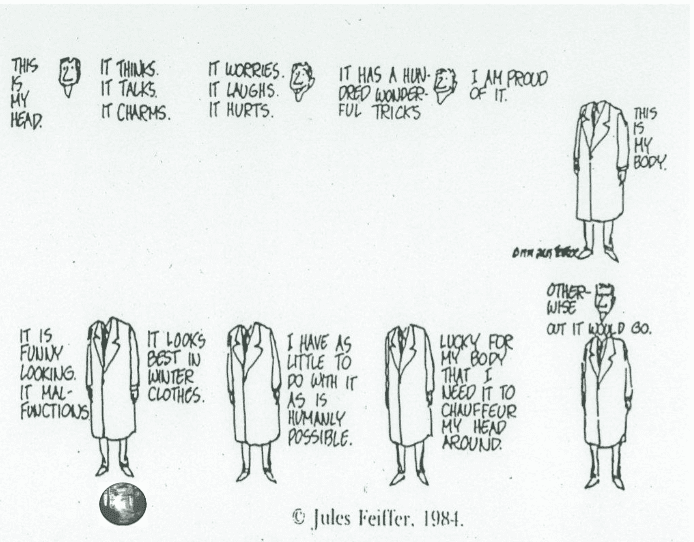 THIS
IS
MY
HEAD.
IT THINKS.
IT TALKS.
IT CHARMS.
IT WORRIES.
IT LAUGHS.
IT HURTS.
IT HAS A HUN-
DRED WONDER-
FUL TRICKS
I AM PROUD
OF IT.
THIS
IS
MY
BODY.
IT IS
FUNNY
LOOKING.
IT MAL-
FUNCTIONS
IT LOOKS
BEST IN
WINTER
CLOTHES.
I HAVE AS
LITTLE TO
DO WITH IT
AS IS
HUMANLY
POSSIBLE.
LUCKY FOR
MY BODY
THAT I
NEED IT TO
CHAUFFEUR
MY HEAD
AROUND.
OTHER-
WISE
OUT IT WOULD GO.
© Jules Feiffer, 1984.